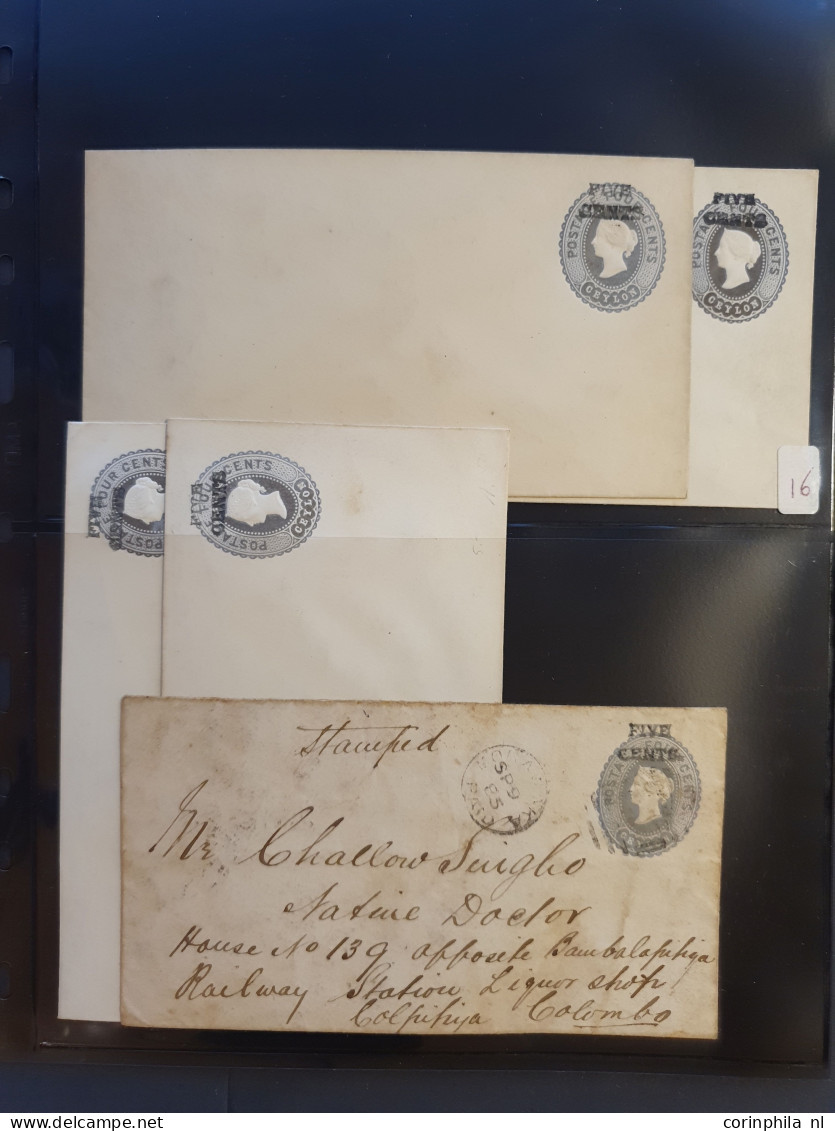 FIVE
CENTS
POSTAGE FOUR CENTS
CEYLON
FIVE
CENTS
POSTAGE FOUR CENTS
CEYLON
16
FIVE
CENTS
POSTAGE FOUR CENTS
FIVE
CENTS
POSTAGE FOUR CENTS
CEYLON
Stamped
SP 9
85
FIVE
CENTS
POSTAGE FOUR CENTS
Mr Challow Singho
Native Doctor
House No 139 opposite Bambalapitiya
Railway Station Liquor shop
Colpitiya Colombo
corinphila nl